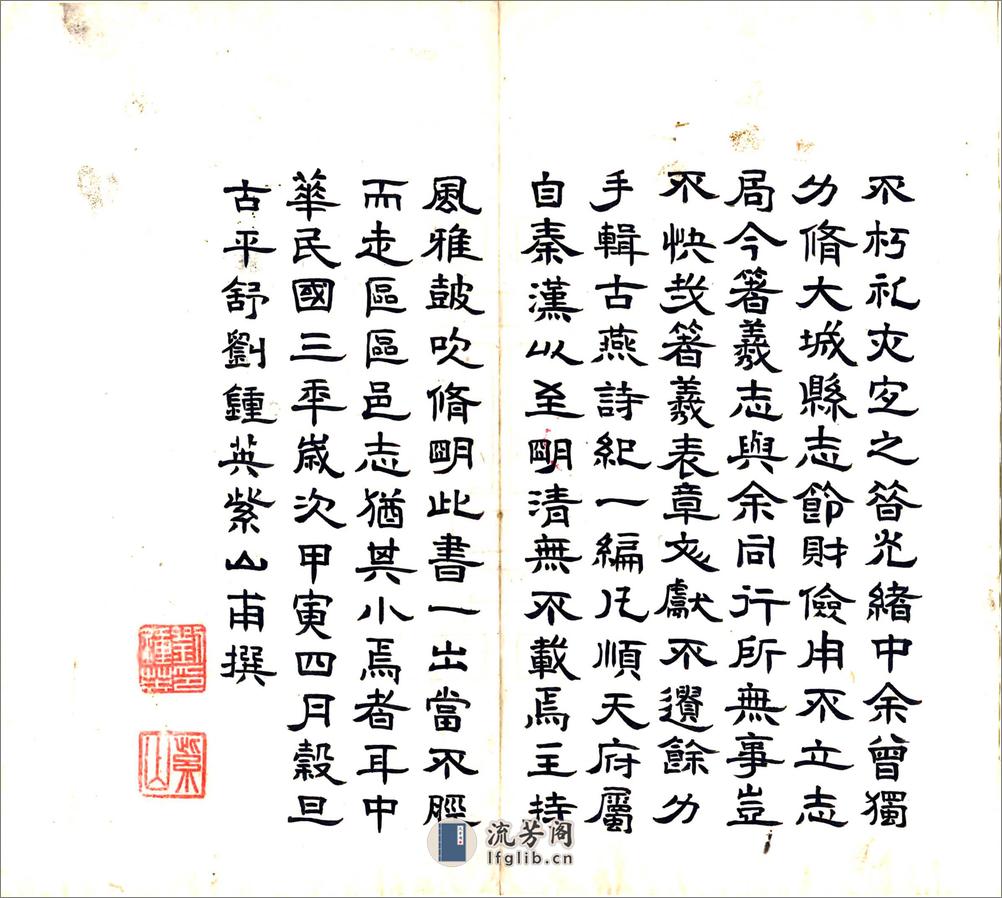 不朽礼亦宜之昔光緒中余曾獨
力脩大城縣志節財儉用不立志
局今箸羲志與余同行所無事豈
不快哉箸羲表章文獻不遺餘力
手輯古燕詩紀一編凡順天府屬
自秦漢以至明清無不載焉主持
風雅鼓吹脩明此書一出當不脛
而走區區邑志猶其小焉者耳中
華民國三年歲次甲寅四月穀旦
古平舒劉鍾英紫山甫撰
劉印鍾英
紫山
流芳阁
lfglib.cn